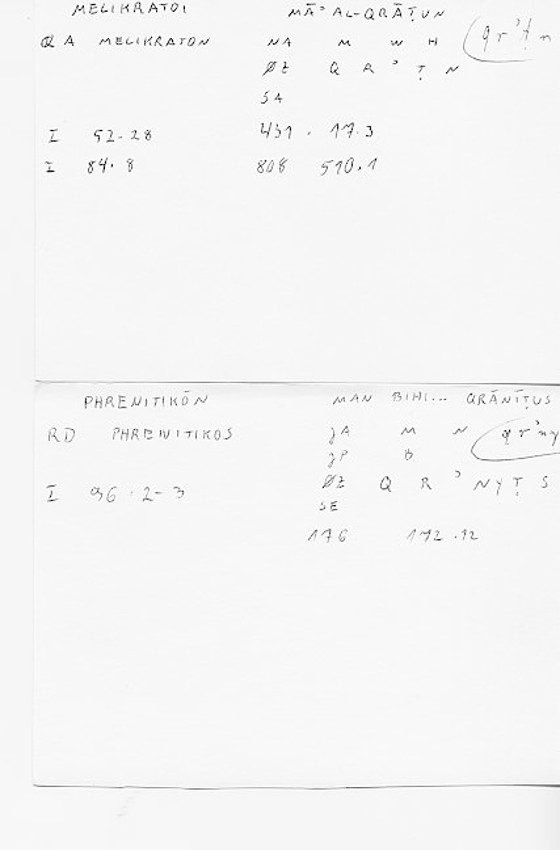 MELIKRATOI MĀʾ AL-QRĀṬUN
QA MELIKRATON NA M W H qrʾṭn
ØZ Q R ʾ Ṭ N
SA
I 52.28 431. 17.3
I 84.8 808 510.1
PHRENITIKŌN MAN BIHI... QRĀNĪṬUS
RD PHRENITIKOS JA M N qrʾny
JP B
ØZ Q R ʾ N Y Ṭ S
SE
I 96.2-3
176 172.12